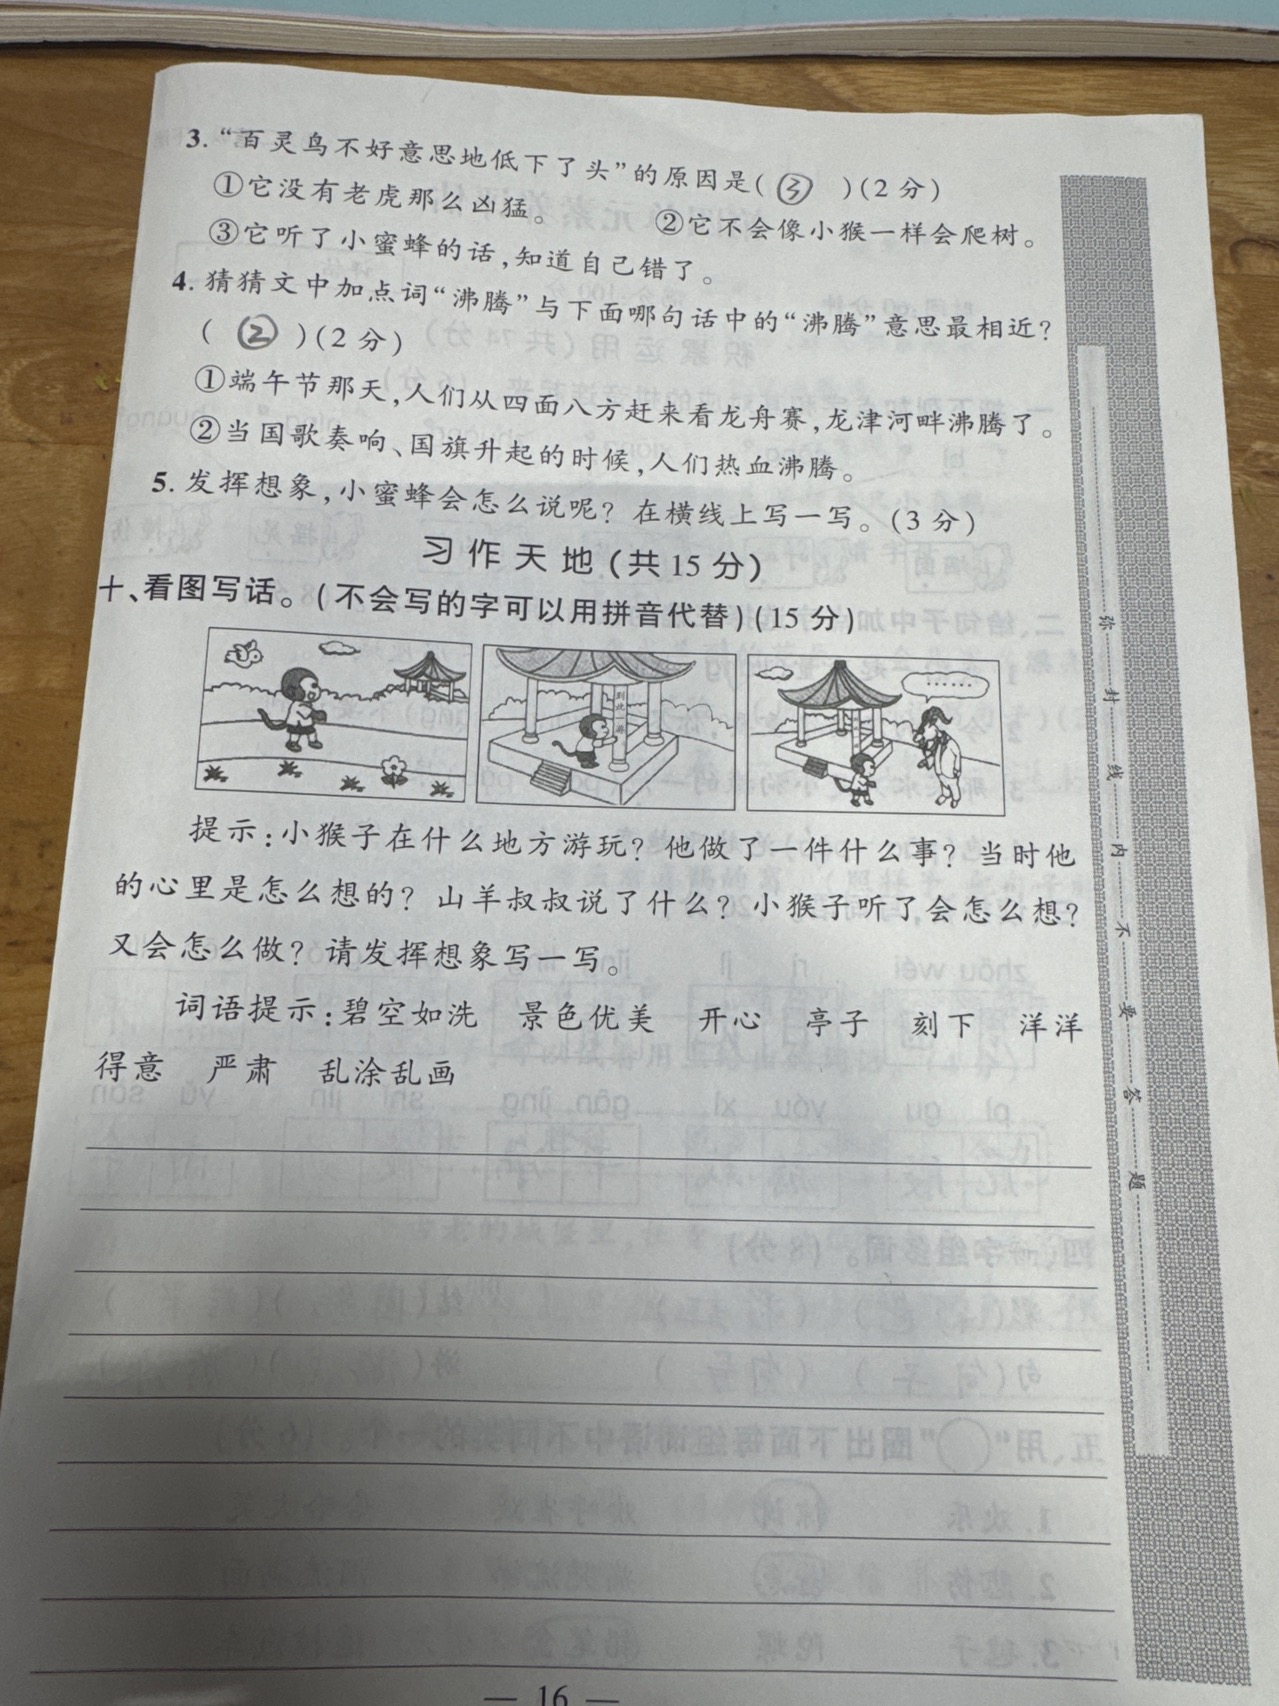 3. “百灵鸟不好意思地低下了头”的原因是( ③ )(2 分)
①它没有老虎那么凶猛。 ②它不会像小猴一样会爬树。
③它听了小蜜蜂的话,知道自己错了。
4. 猜猜文中加点词“沸腾”与下面哪句话中的“沸腾”意思最相近?
( ② )(2 分)
①端午节那天,人们从四面八方赶来看龙舟赛,龙津河畔沸腾了。
②当国歌奏响、国旗升起的时候,人们热血沸腾。
5. 发挥想象,小蜜蜂会怎么说呢? 在横线上写一写。(3 分)
习作天地(共 15 分)
十、看图写话。(不会写的字可以用拼音代替)(15 分)
到此一游
……
提示:小猴子在什么地方游玩? 他做了一件什么事? 当时他
的心里是怎么想的? 山羊叔叔说了什么? 小猴子听了会怎么想?
又会怎么做? 请发挥想象写一写。
词语提示:碧空如洗 景色优美 开心 亭子 刻下 洋洋
得意 严肃 乱涂乱画
— 16 —
弥封线内不要答题